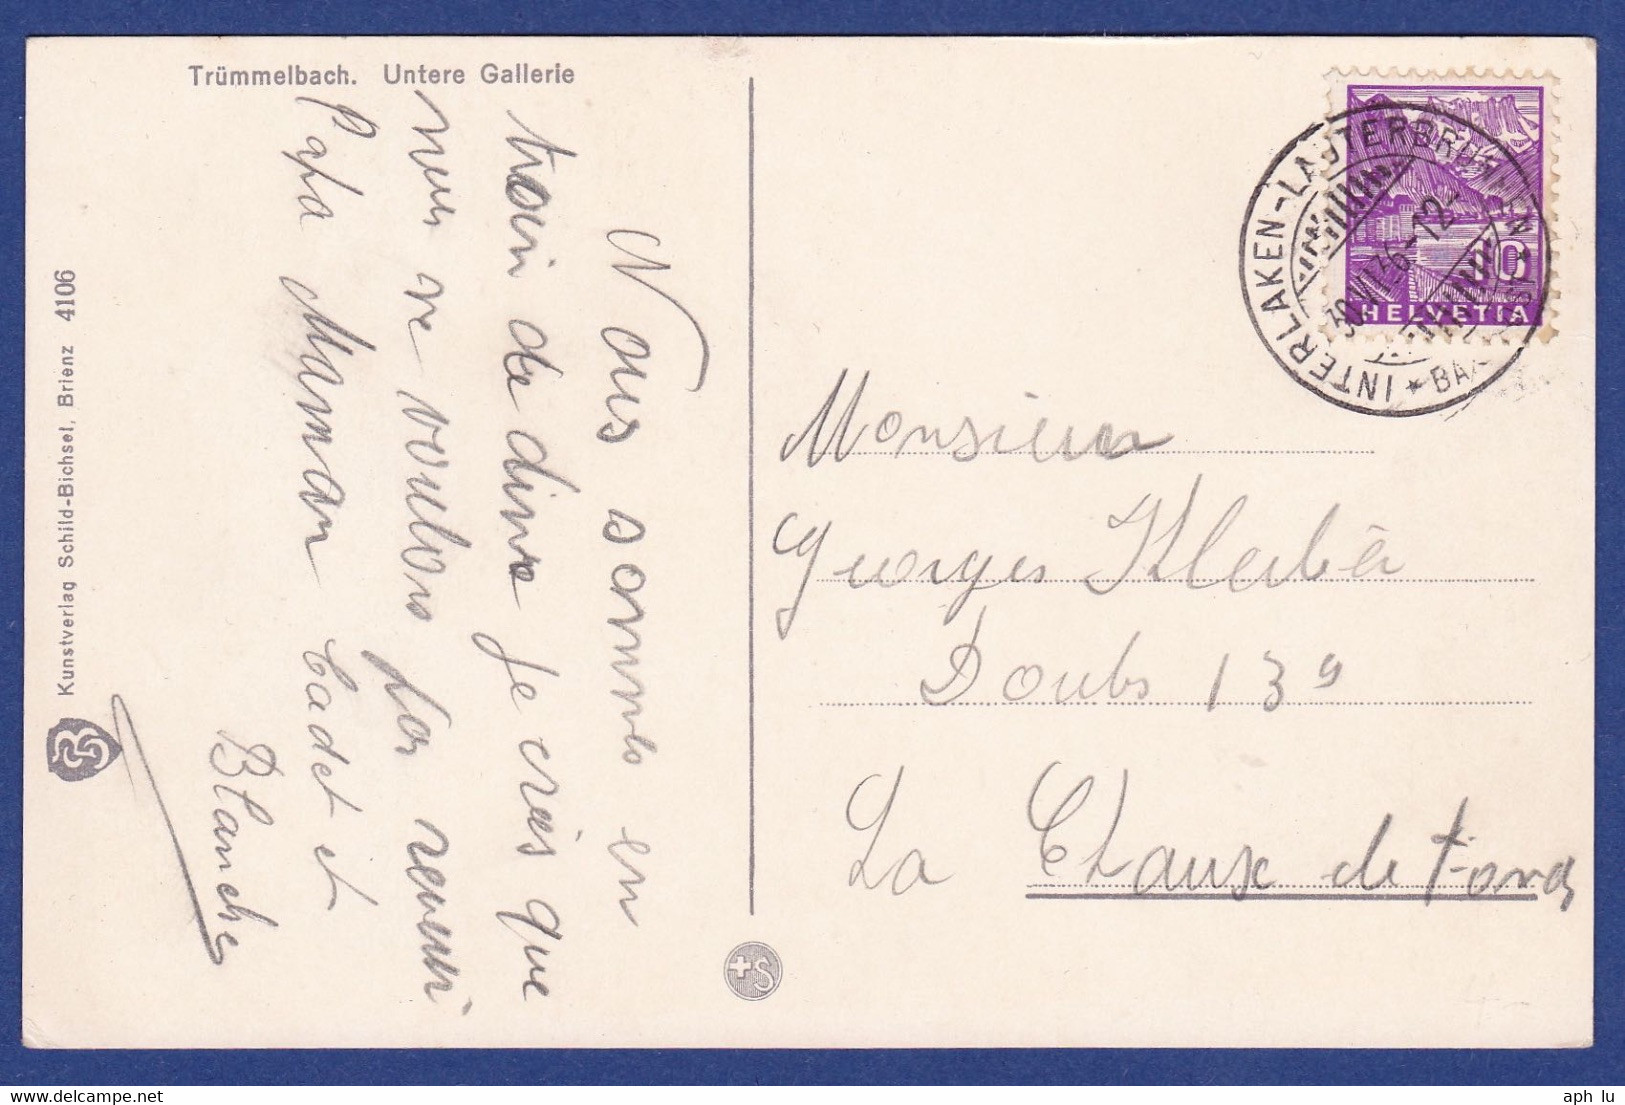 Trümmelbach. Untere Gallerie
Nous sommes en
train de dine je crois que
nous ne voulons pas revenir
Papa Maman Cadet et
Blanche
Kunstverlag Schild-Bichsel, Brienz 4106
INTERLAKEN-LAUTERBRUNNEN
30.VI.36-12-
10
HELVETIA
Monsieur
Georges Kleiber
Doubs 139
La Chaux de Fonds
+S
aph lu